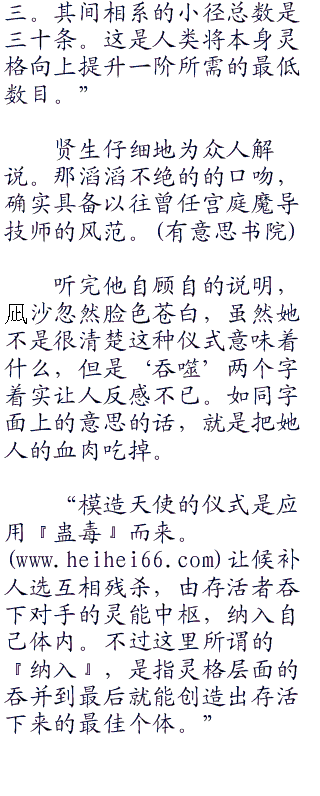 三。其间相系的小径总数是
三十条。这是人类将本身灵
格向上提升一阶所需的最低
数目。”
贤生仔细地为众人解
说。那滔滔不绝的的口吻，
确实具备以往曾任宫庭魔导
技师的风范。(有意思书院)
听完他自顾自的说明，
凪沙忽然脸色苍白，虽然她
不是很清楚这种仪式意味着
什么，但是‘吞噬’两个字
着实让人反感不已。如同字
面上的意思的话，就是把她
人的血肉吃掉。
“模造天使的仪式是应
用『蛊毒』而来。
(www.heihei66.com)让候补
人选互相残杀，由存活者吞
下对手的灵能中枢，纳入自
己体内。不过这里所谓的
『纳入』，是指灵格层面的
吞并到最后就能创造出存活
下来的最佳个体。”